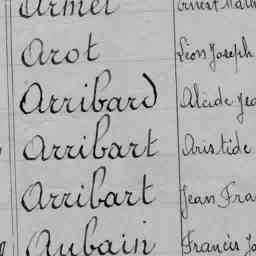 Armel Ernest
Arot Léon Joseph
Arribard Alcide
Arribart Aristide
Arribart Jean
Aubain Francis